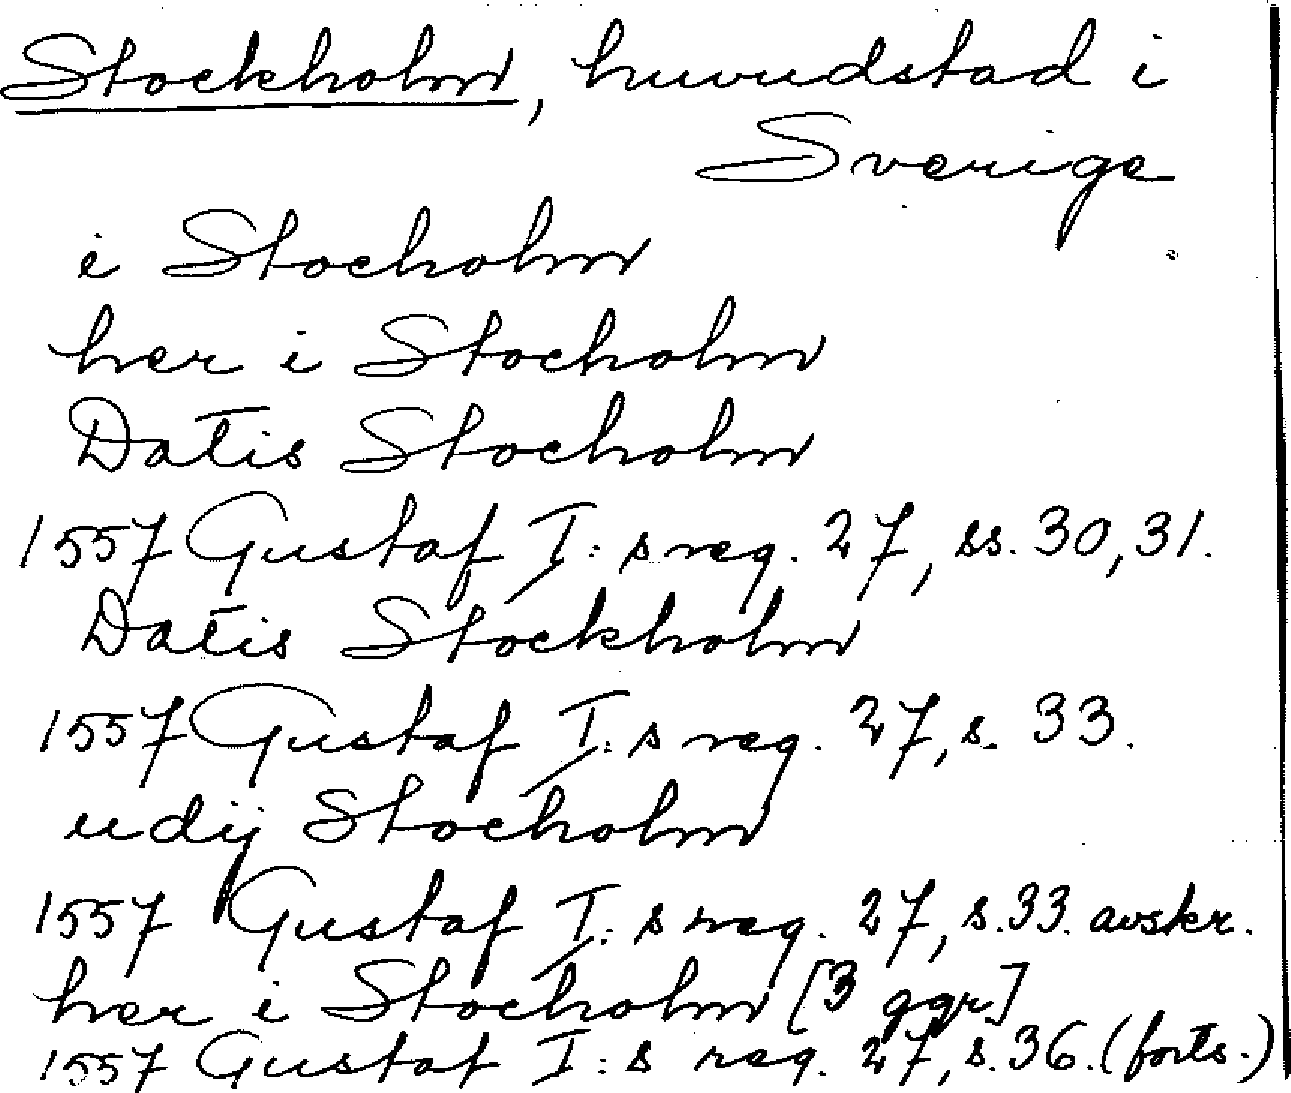 Stockholm, huvudstad i
Sverige
i Stocholm
her i Stocholm
Datis Stocholm
1557 Gustaf I:s reg. 27, ss. 30, 31.
Datis Stockholm
1557 Gustaf I:s reg. 27, s. 33.
udij Stocholm
1557 Gustaf I:s reg. 27, s. 33. avskr.
her i Stocholm [3 ggr]
1557 Gustaf I:s reg. 27, s. 36. (forts.)